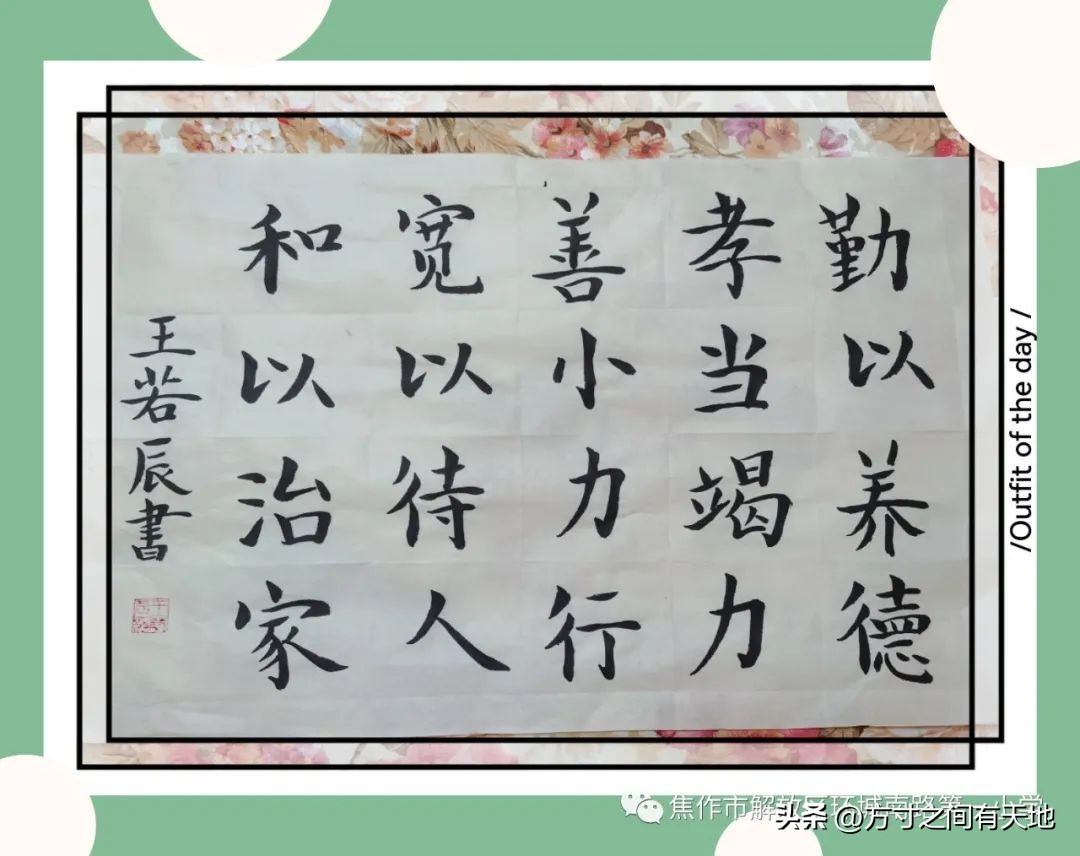 勤以养德
孝当竭力
善小力行
宽以待人
和以治家
王若辰書
/Outfit of the day /
焦作市解放区环城南路第 小学
头条 @方寸之间有天地